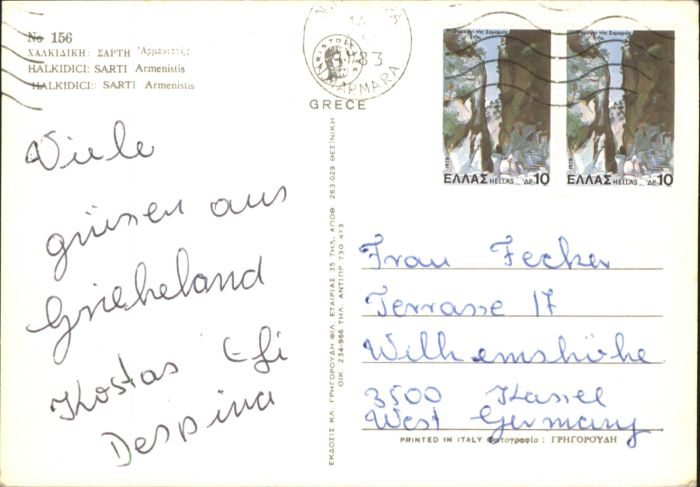 No 156
ΧΑΛΚΙΔΙΚΗ: ΣΑΡΤΗ Ἀρμενιστής
HALKIDICI: SARTI Armenistis
HALKIDICI: SARTI Armenistis
83
GREECE
Φαράγγι τῆς Σαμαριᾶς
1979
ΕΛΛΑΣ HELLAS ΔΡ 10
Φαράγγι τῆς Σαμαριᾶς
1979
ΕΛΛΑΣ HELLAS ΔΡ 10
Viele
grüsen aus
Griecheland
Kostas Efi
Despina
ΕΚΔΟΣΙΣ ΚΛ. ΓΡΗΓΟΡΟΥΔΗ ΦΙΛ. ΕΤΑΙΡΙΑΣ 35 ΤΗΛ. ΑΠΟΘ 263.029 ΘΕΣ/ΝΙΚΗ
ΟΙΚ. 234-966 ΤΗΛ. ΑΝΤΙΠΡ 730 473
Frau Fecker
Terrasse 17
Wilhemshöhe
3500 Kassel
West Germany
PRINTED IN ITALY Φωτογραφία : ΓΡΗΓΟΡΟΥΔΗ